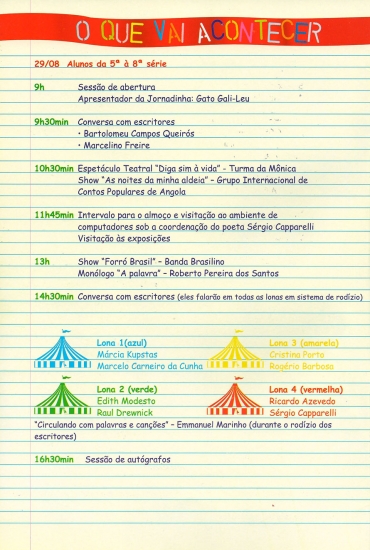 O QUE VAI ACONTECER
29/08 Alunos da 5ª à 8ª série
9h Sessão de abertura
Apresentador da Jornadinha: Gato Gali-Leu
9h30min Conversa com escritores
• Bartolomeu Campos Queirós
• Marcelino Freire
10h30min Espetáculo Teatral "Diga sim à vida" - Turma da Mônica
Show "As noites da minha aldeia" – Grupo Internacional de
Contos Populares de Angola
11h45min Intervalo para o almoço e visitação ao ambiente de
computadores sob a coordenação do poeta Sérgio Capparelli
Visitação às exposições
13h Show "Forró Brasil" – Banda Brasilino
Monólogo "A palavra" – Roberto Pereira dos Santos
14h30min Conversa com escritores (eles falarão em todas as lonas em sistema de rodízio)
Lona 1(azul)
Márcia Kupstas
Marcelo Carneiro da Cunha
Lona 3 (amarela)
Cristina Porto
Rogério Barbosa
Lona 2 (verde)
Edith Modesto
Raul Drewnick
Lona 4 (vermelha)
Ricardo Azevedo
Sérgio Capparelli
"Circulando com palavras e canções" – Emmanuel Marinho (durante o rodízio dos
escritores)
16h30min Sessão de autógrafos